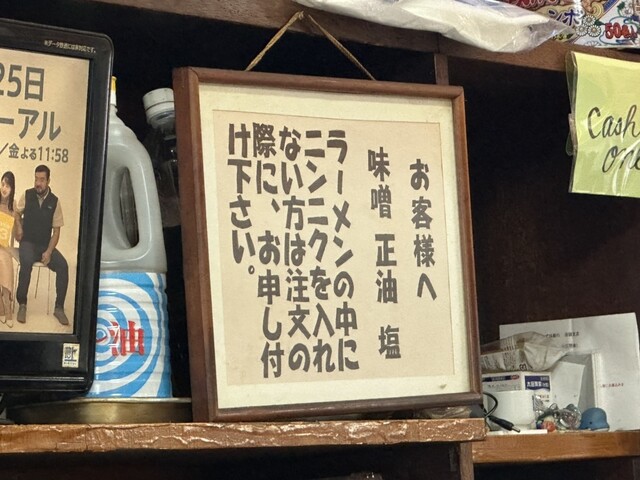 お客様へ
味噌 正油 塩
ラーメンの中に
ニンニクを入れ
ない方は注文の
際に、お申し付
け下さい。
25日
ーアル
／金よる11:58
油
Cash
on
50